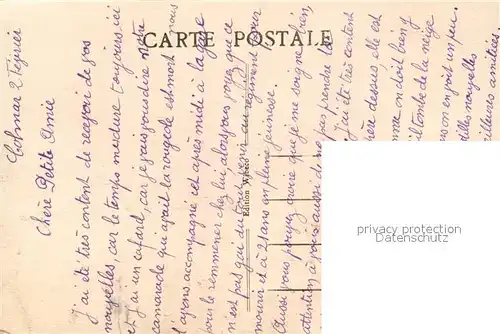 CARTE POSTALE
Colmar 2 Février
Chère Petite Amie
J'ai été très content de recevoir de vos
nouvelles, car le temps me dure toujours ici
et j'ai un cafard, car je vous vous dire notre
camarade qui avait la rougeole est mort nous
l'avons accompagné cet après midi à la gare
pour le remmener chez lui, alors vous voyez que ce
n'est pas gai du tout venir au régiment pour
mourir et à 21 ans en pleine jeunesse.
Aussi vous pouvez croire que je me soigne bien,
attention à vous aussi de ne pas prendre la
j'ai été très content
chère dessus, elle est
comme on doit bien y
il tombe de la neige
on en voit un peu.
nouvelles
Meilleures amitiés.
Edition Wybecq
privacy protection
Datenschutz